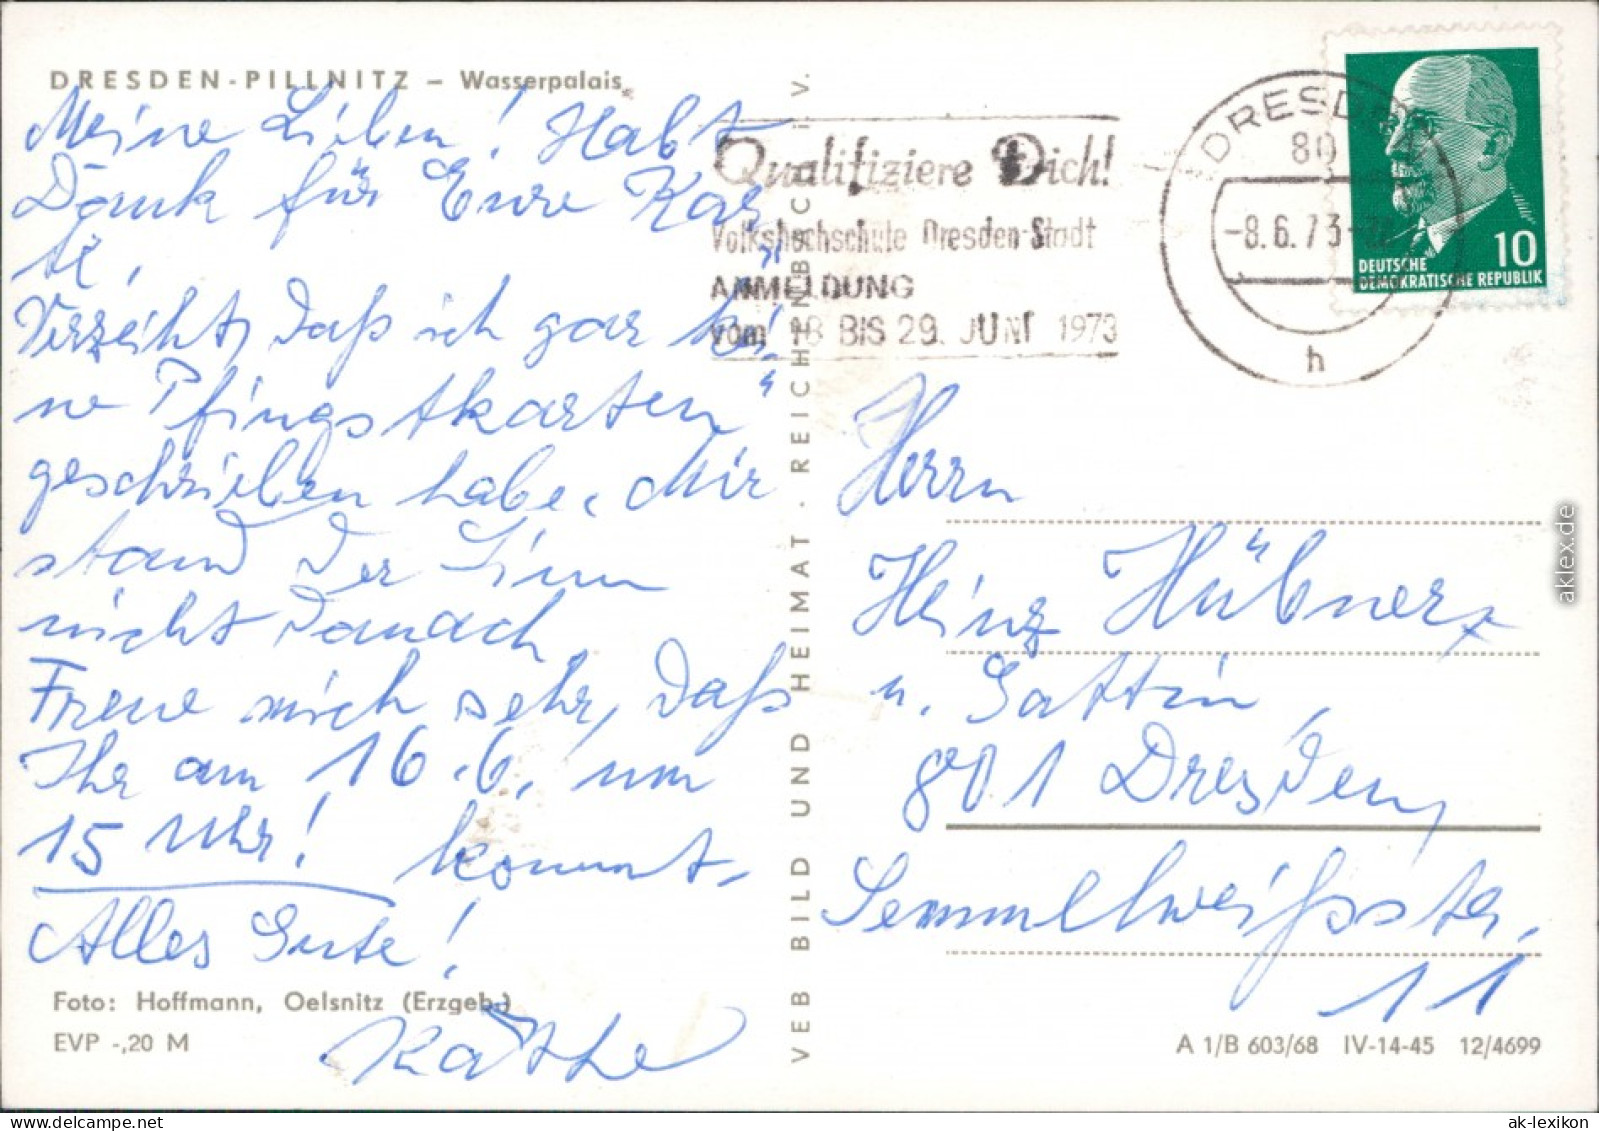 DRESDEN-PILLNITZ – Wasserpalais
Meine Lieben! Habt
Dank für Eure Kar-
te.
Verzeiht, daß ich gar kei-
ne "Pfingstkarten"
geschrieben habe. Mir
stand der Sinn
nicht danach.
Freue mich sehr, daß
Ihr am 16.6. um
15 Uhr! kommt.
Alles Gute!
Käthe
Foto: Hoffmann, Oelsnitz (Erzgeb.)
EVP -,20 M
VEB BILD UND HEIMAT · REICHENBACH I. V.
Qualifiziere Dich!
Volkshochschule Dresden-Stadt
ANMELDUNG
vom 18 BIS 29. JUNI 1973
DRESDEN
80
-8.6.73-
h
10
DEUTSCHE
DEMOKRATISCHE REPUBLIK
Herrn
Heinz Hübner
u. Gattin,
801 Dresden,
Semmelweißstr.
11
A 1/B 603/68 IV-14-45 12/4699
aklex.de
ak-lexikon